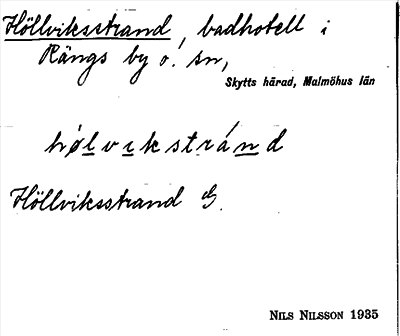 Höllviksstrand, badhotell i
Rängs by o. sn,
Skytts härad, Malmöhus län
hølvikstránd
Höllviksstrand G.
NILS NILSSON 1935